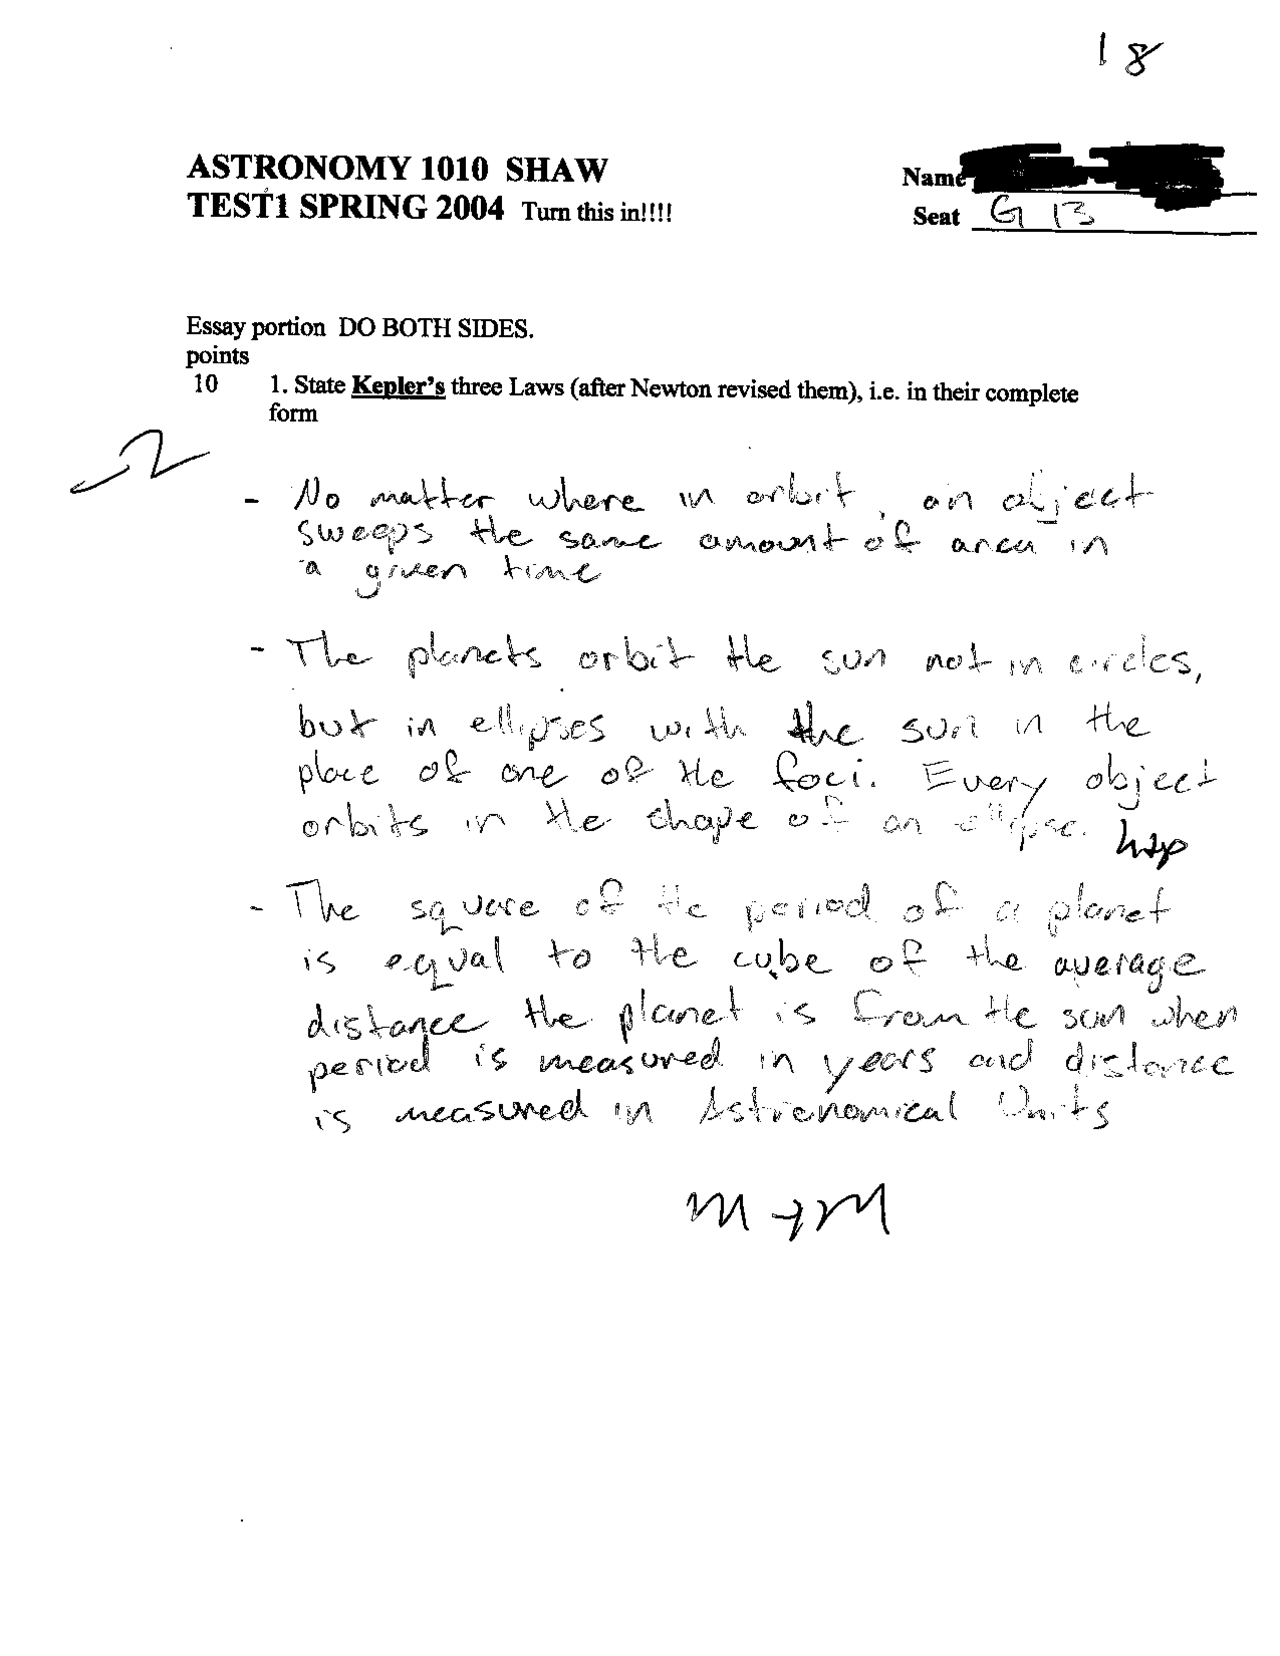 18
ASTRONOMY 1010 SHAW
TEST1 SPRING 2004 Turn this in!!!!
Name
Seat G 13
Essay portion DO BOTH SIDES.
points
10 1. State Kepler's three Laws (after Newton revised them), i.e. in their complete
form
-2
- No matter where in orbit, an object
sweeps the same amount of area in
a given time
- The planets orbit the sun not in circles,
but in ellipses with the sun in the
place of one of the foci. Every object
orbits in the shape of an ellipse.
hyp
- The square of the period of a planet
is equal to the cube of the average
distance the planet is from the sun when
period is measured in years and distance
is measured in Astronomical Units
M+M